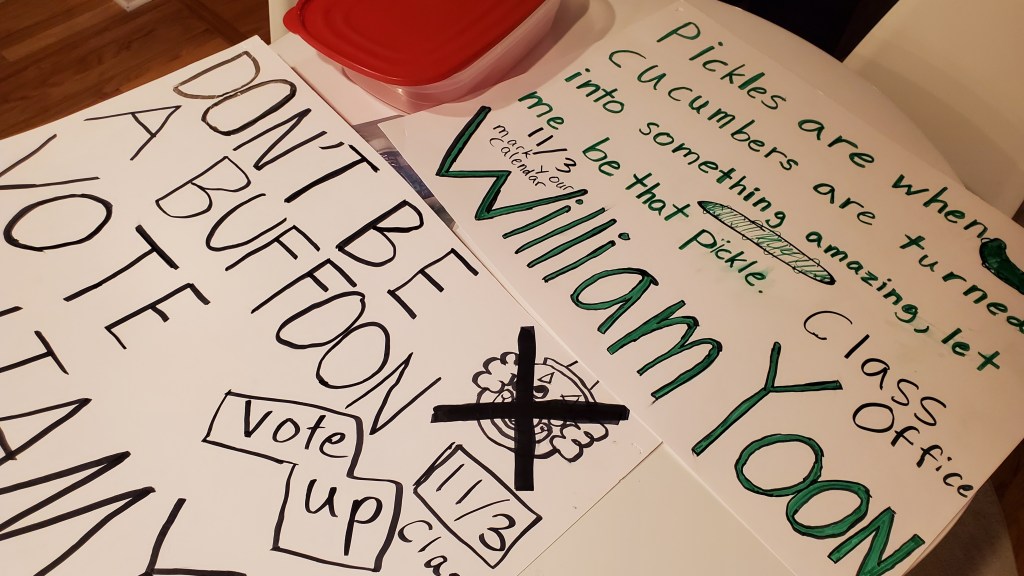 DON'T BE
A BUFFOON
VOTE
vote
up
11/3
Pickles are when
cucumbers are turned
into something amazing, let
me be that pickle.
11/3
mark your
calendar
William Yoon
Class
Office